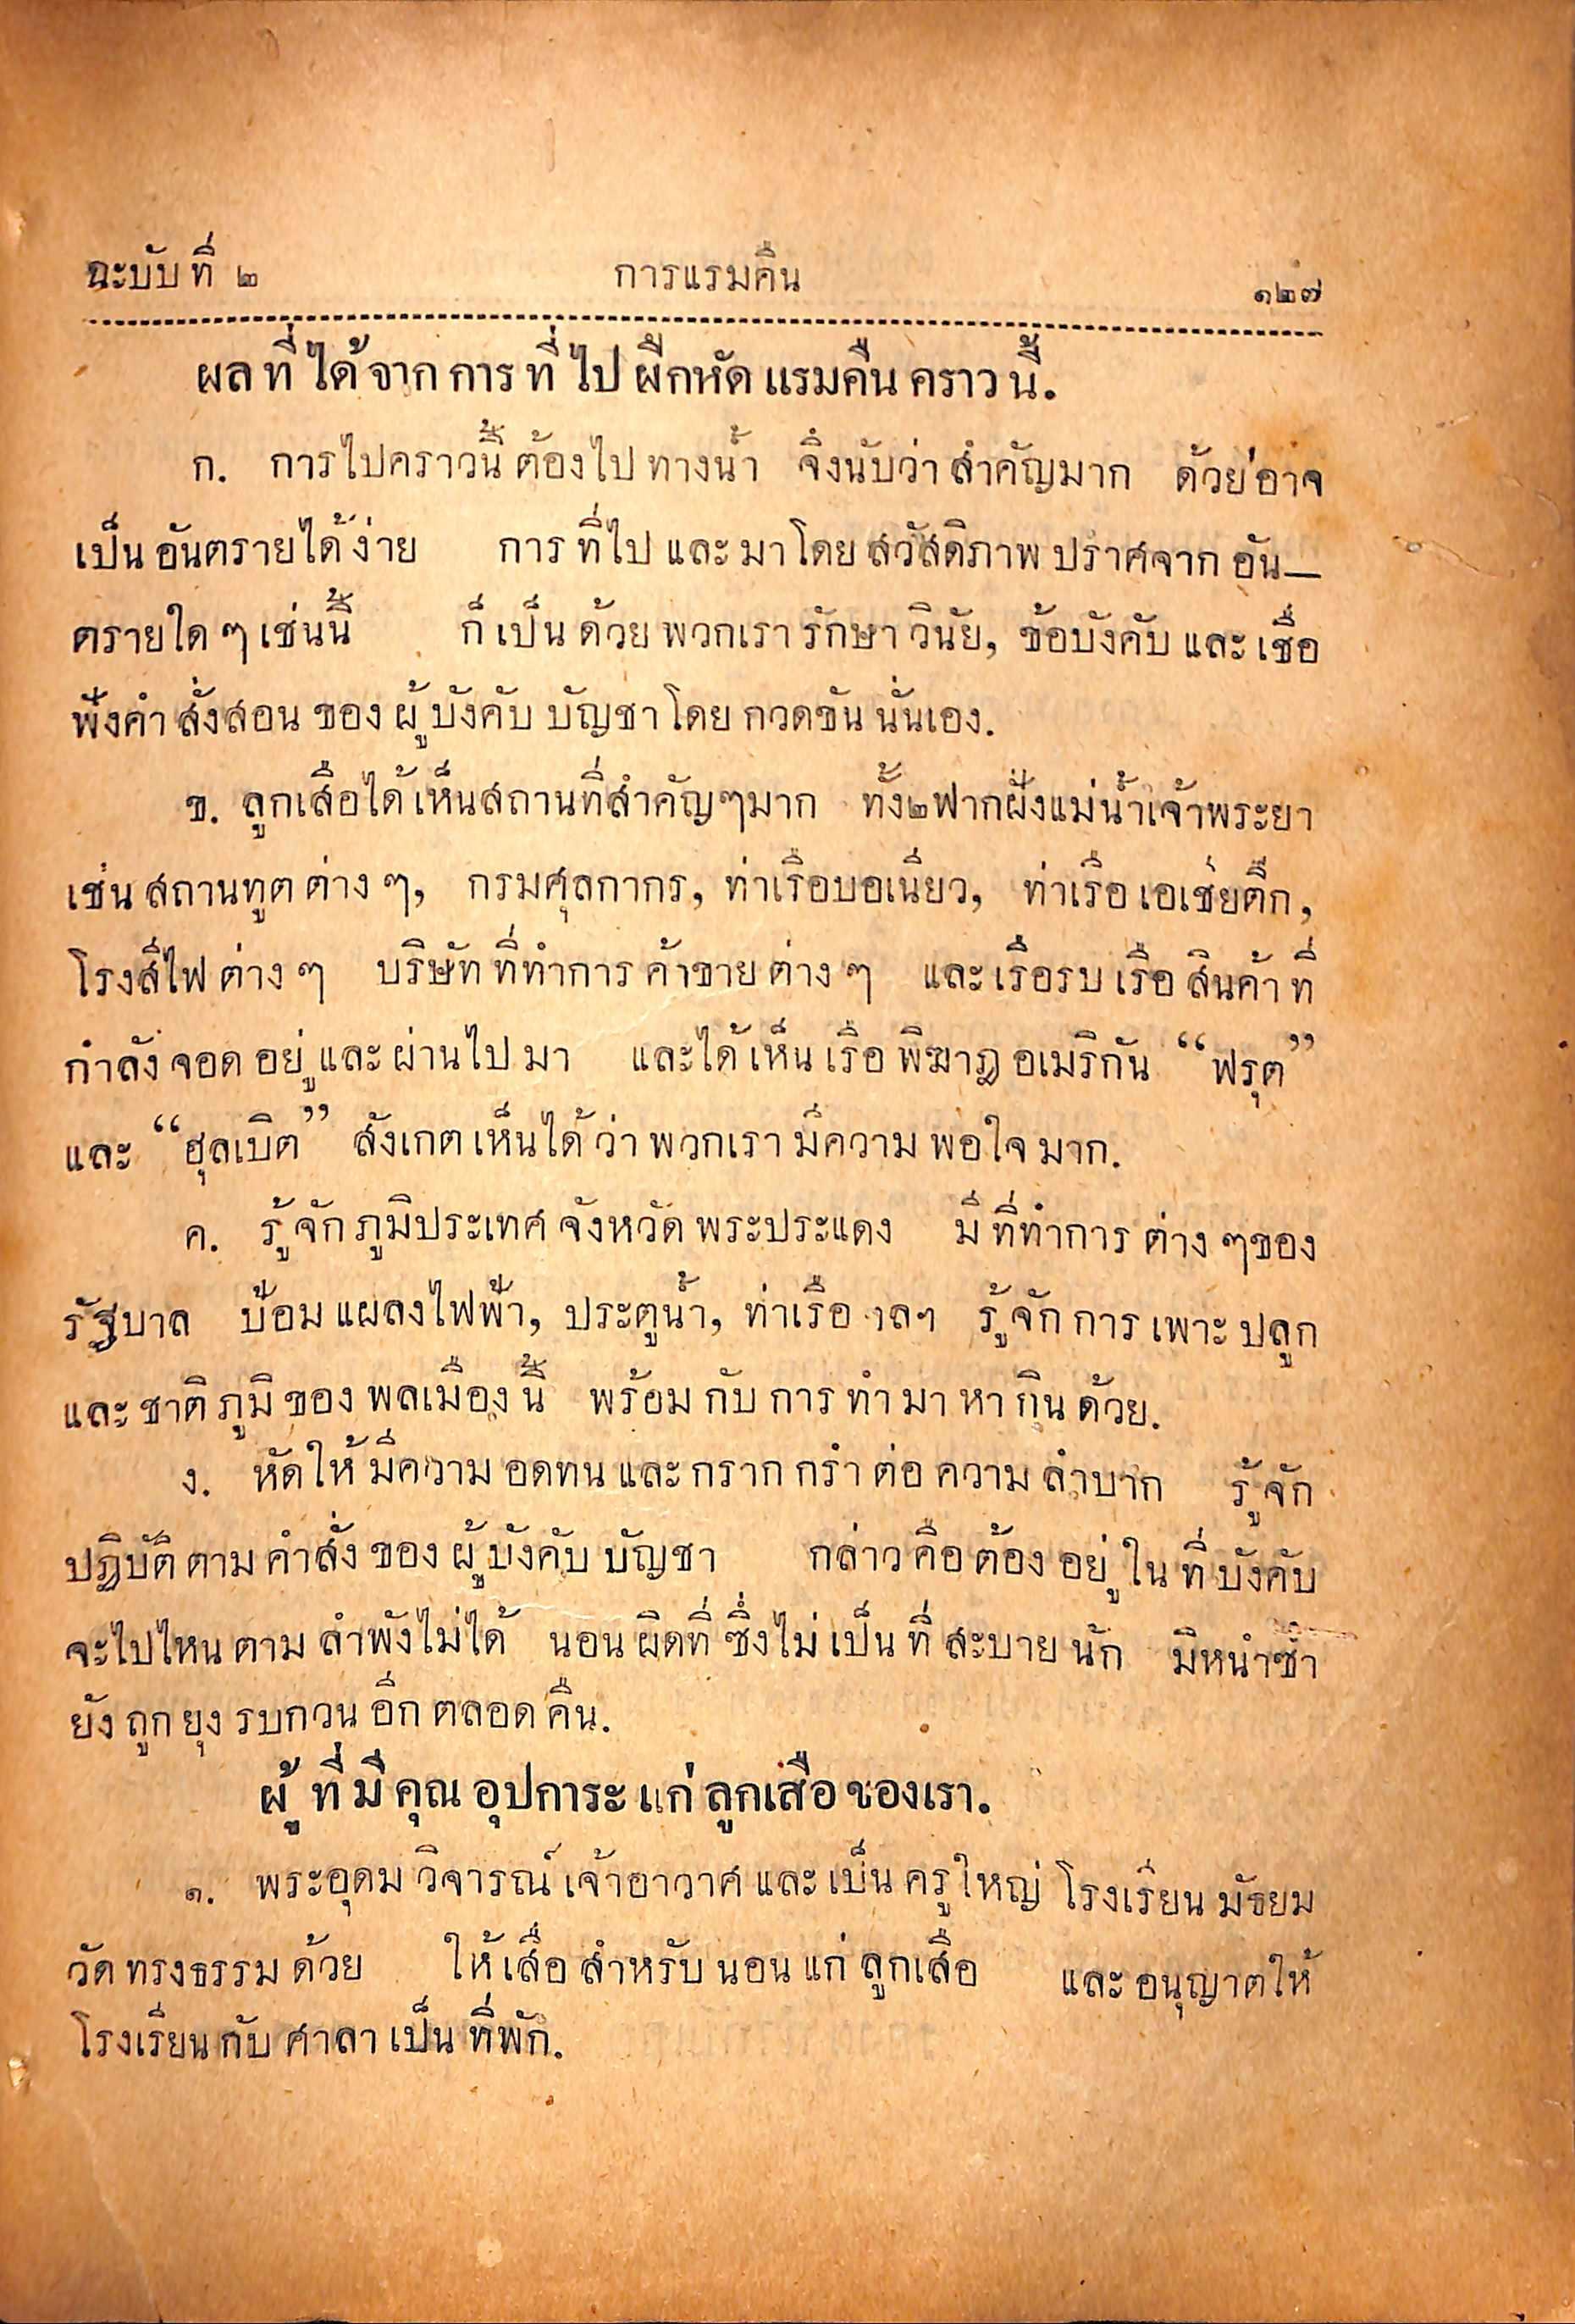 ฉะบับที่ ๒ การแรมคืน ๑๒๗
ผลที่ได้จากการที่ไปฝึกหัดแรมคืนคราวนี้.
ก. การไปคราวนี้ต้องไปทางน้ำ จึงนับว่าสำคัญมาก ด้วยอาจ
เป็นอันตรายได้ง่าย การที่ไปและมาโดยสวัสดิภาพปราศจากอัน—
ตรายใดๆเช่นนี้ ก็เป็นด้วยพวกเรารักษาวินัย, ข้อบังคับและเชื่อ
ฟังคำสั่งสอนของผู้บังคับบัญชาโดยกวดขันนั่นเอง.
ข. ลูกเสือได้เห็นสถานที่สำคัญๆมาก ทั้ง๒ฟากฝั่งแม่น้ำเจ้าพระยา
เช่นสถานทูตต่างๆ, กรมศุลกากร, ท่าเรือบอเนียว, ท่าเรือเอเชียตีก,
โรงสีไฟต่างๆ บริษัทที่ทำการค้าขายต่างๆ และเรือรบเรือสินค้าที่
กำลังจอดอยู่และผ่านไปมา และได้เห็นเรือพิฆาฏอเมริกัน “ฟรุต”
และ “ฮุลเบิต” สังเกตเห็นได้ว่าพวกเรามีความพอใจมาก.
ค. รู้จักภูมิประเทศจังหวัดพระประแดง มีที่ทำการต่างๆของ
รัฐบาล ป้อมแผลงไฟฟ้า, ประตูน้ำ, ท่าเรือ ฯลฯ รู้จักการเพาะปลูก
และชาติภูมิของพลเมืองนี้ พร้อมกับการทำมาหากินด้วย.
ง. หัดให้มีความอดทนและกรากกรำต่อความลำบาก รู้จัก
ปฏิบัติตามคำสั่งของผู้บังคับบัญชา กล่าวคือต้องอยู่ในที่บังคับ
จะไปไหนตามลำพังไม่ได้ นอนผิดที่ซึ่งไม่เป็นที่สะบายนัก มิหนำซ้ำ
ยังถูกยุงรบกวนอีกตลอดคืน.
ผู้ที่มีคุณอุปการะแก่ลูกเสือของเรา.
๑. พระอุดมวิจารณ์เจ้าอาวาศและเป็นครูใหญ่โรงเรียนมัธยม
วัดทรงธรรมด้วย ให้เสื่อสำหรับนอนแก่ลูกเสือ และอนุญาตให้
โรงเรียนกับศาลาเป็นที่พัก.